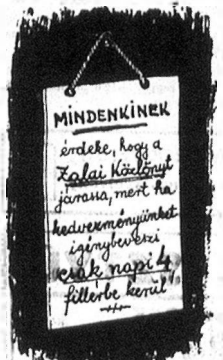 MINDENKINEK
érdeke, hogy a
Zalai Közlönyt
járassa, mert ha
kedvezményünket
igénybeveszi
csak napi 4
fillérbe kerül